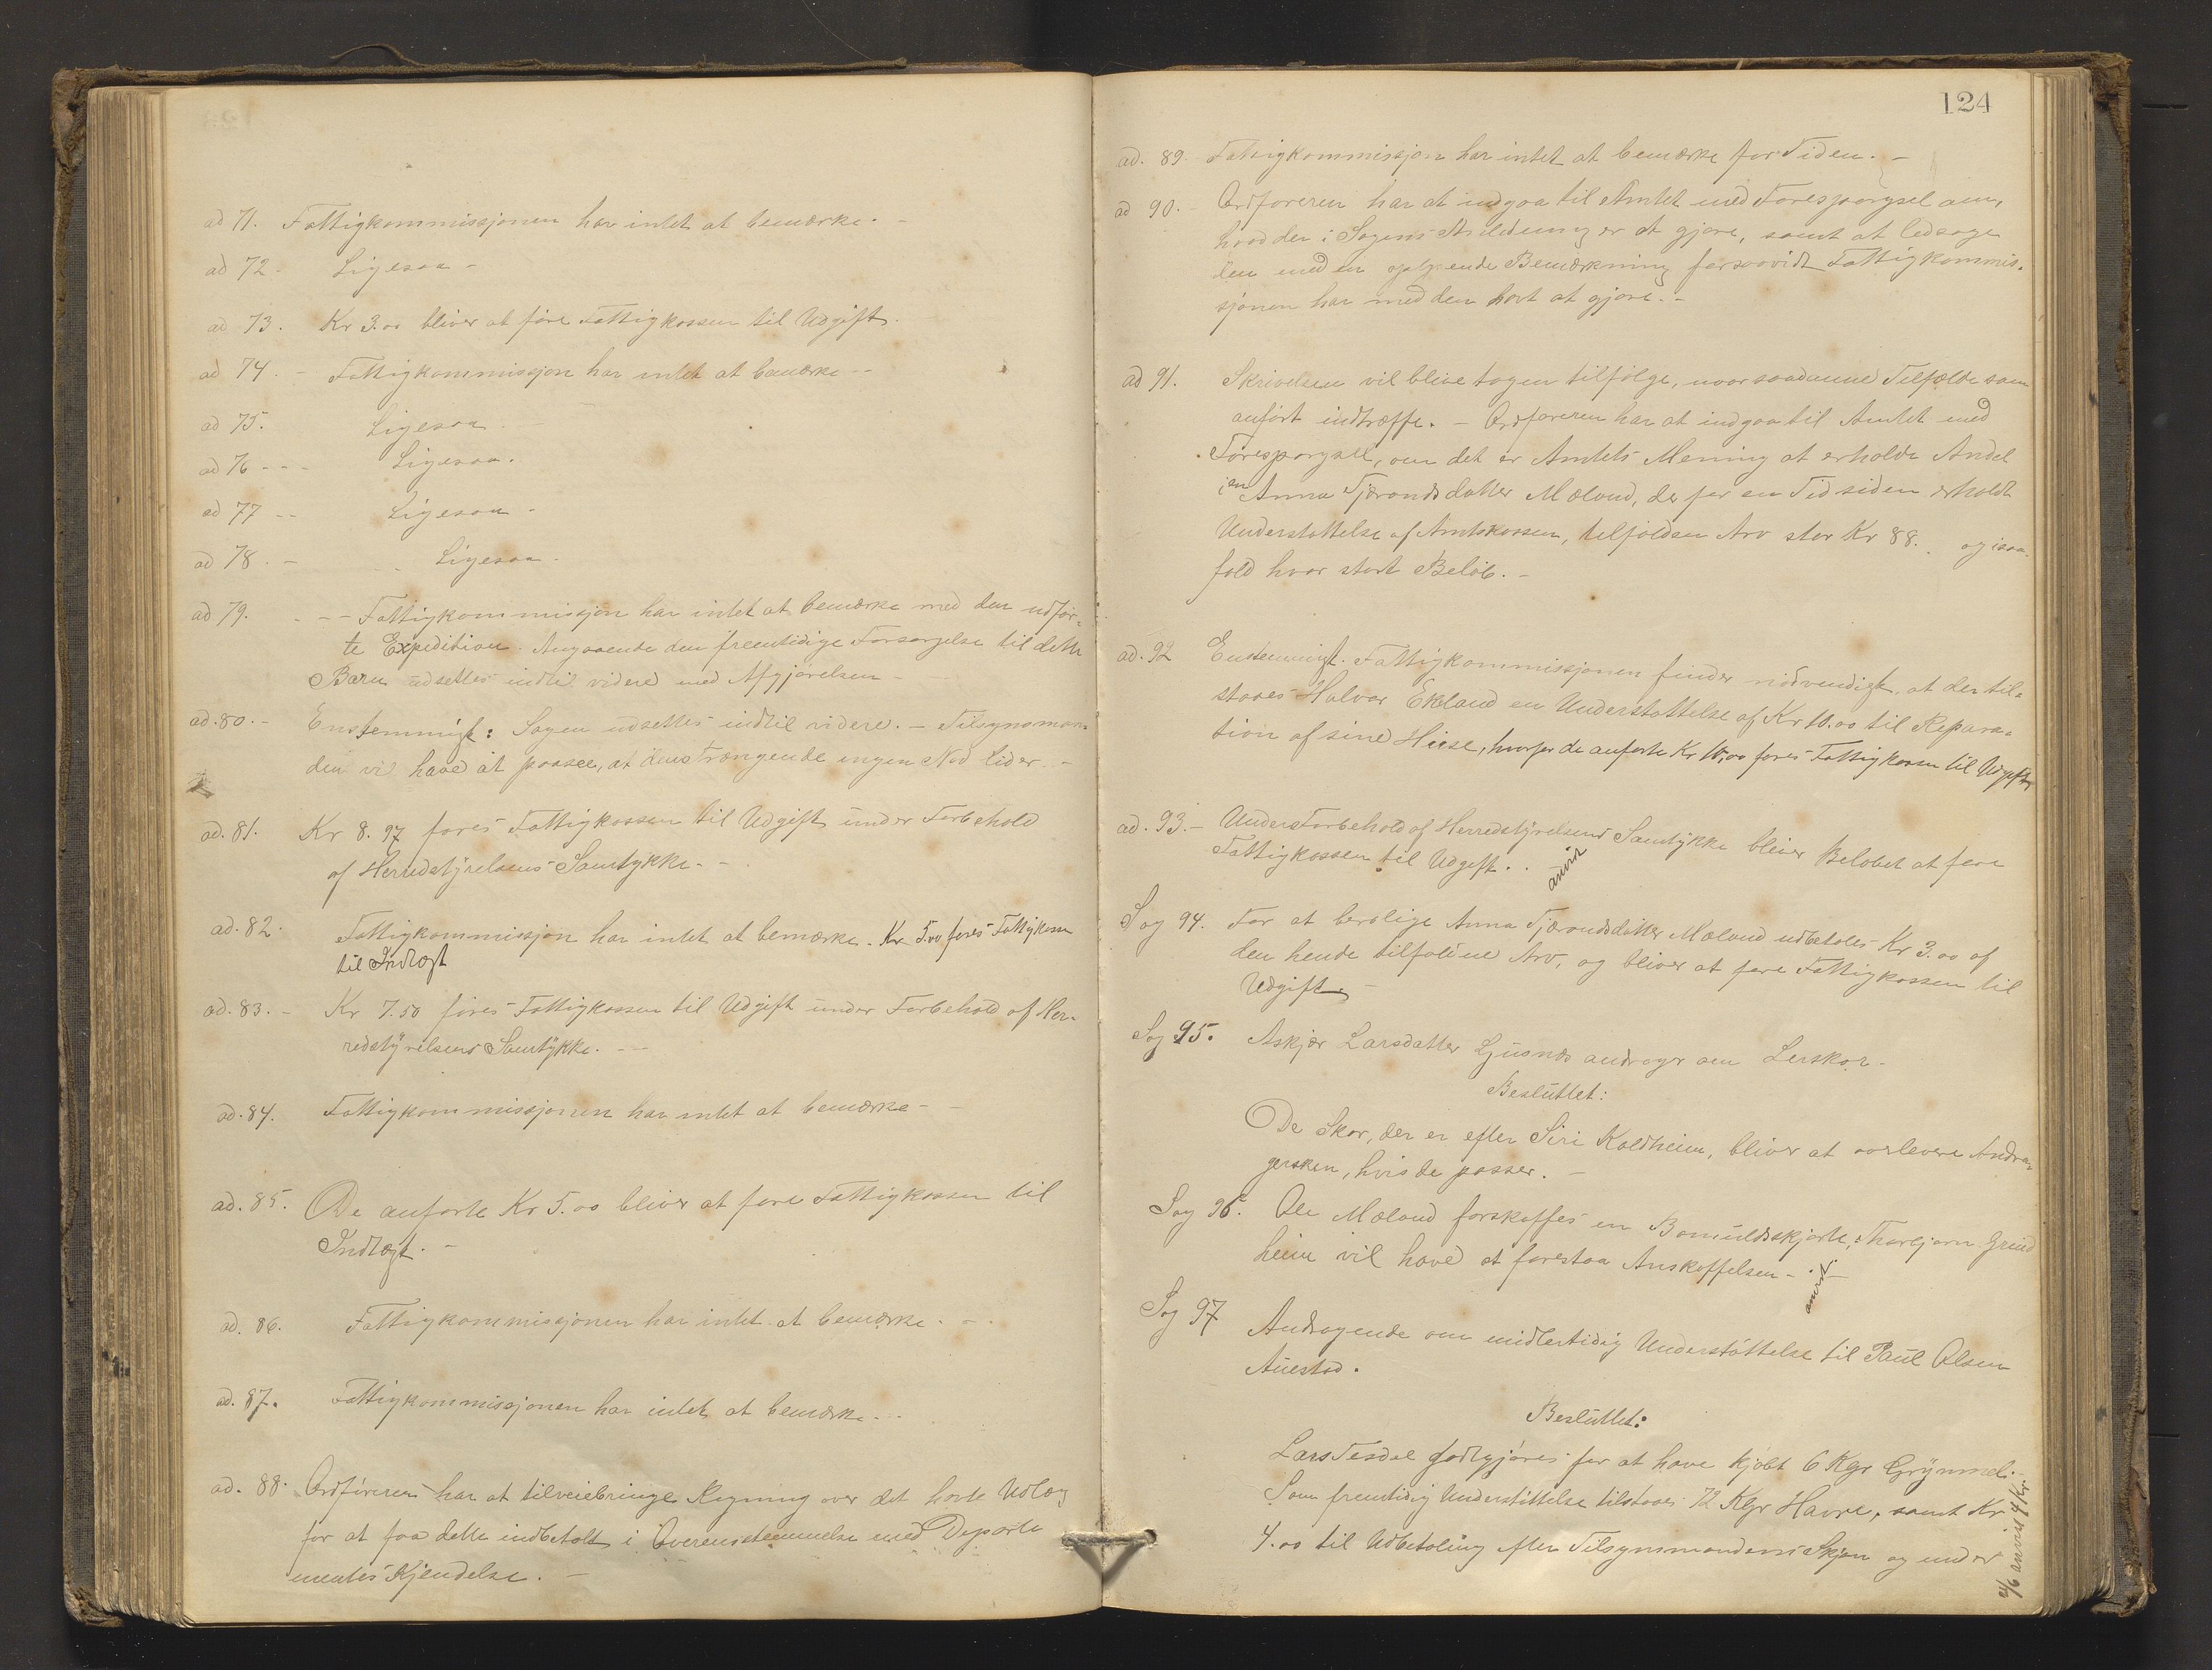 ad 71. Fattigkommissjonen har intet at bemærke. -
ad 72. Ligesaa -
ad 73. Kr 3.00 bliver at före Fattigkassen til Udgift.
ad 74. - Fattigkommissjon har intet at bemærke --
ad 75. Ligesaa -
ad 76 --- Ligesaa.
ad 77 -- Ligesaa -
ad 78. - Ligesaa.
ad 79. --- Fattigkommissjon har intet at bemærke med den udfør-
te Expedition. Angaaende den fremtidige Forsørgelse til dette
Barn udsettes indtil videre med Afgjörelsen -
ad. 80. - Enstemmigt: Sagen udsettes indtil videre. - Tilsynsman-
den vil have at paasee, at dens Trængende ingen Nød lider. -
ad. 81. Kr 8.97 föres Fattigkassen til Udgift under Forbehold
af Herredstyrelsens Samtykke. -
ad. 82. Fattigkommissjon har intet at bemærke. Kr 5.00 føres Fattigkassen
til Indtægt
ad. 83. - Kr 7.50 föres Fattigkassen til Udgift under Forbehold af Her-
redstyrelsens Samtykke. --
ad. 84. Fattigkommissjonen har intet at bemærke -
ad. 85. De anførte Kr 5.00 bliver at føre Fattigkassen til
Indtægt. -
ad. 86. Fattigkommissjonen har intet at bemærke. -
ad. 87. Fattigkommissjonen har intet at bemærke. -
ad. 88. Ordföreren har at tilveiebringe Regning over det havte Udlæg
for at faa dette indbetalt i Overensstemmelse med Departe
mentes Kjendelse. -
124
ad. 89. Fattigkommissjon har intet at bemærke for Tiden. -
ad 90. - Ordføreren har at indgaa til Amtet med Forespørgsel om,
hvad der i Sagens Anledning er at gjøre, samt at ledsage
den med en oplysende Bemærkning forsaavidt Fattigkommis-
sjonen har med den havt at gjøre. -
ad 91. Skrivelsen vil blive tagen tilfölge, naar saadanne Tilfælde som
anfört indtræffe. - Ordføreren har at indgaa til Amtet med
Forespørgsel, om det er Amtets Mening at erholde Andel
i en Anna Tjærandsdatter Mæland, der for en Tid siden erholdt
Understøttelse af Amtskassen, tilfalden Arv stor Kr 88. og isaa-
fald hvor stort Belöb. -
ad. 92 Enstemmigt. Fattigkommissjonen finder nödvendigt, at der til-
staaes Halvor Ekeland en Understøttelse af Kr 10.00 til Repara-
tion af sine Huse, hvorfor de anførte Kr 10,00 føres Fattigkassen til Udgift
ad. 93. - Under Forbehold af Herredstyrelsens Samtykke bliver Beløbet at føre
Fattigkassen til Udgift. . anvist
Sag 94. For at berolige Anna Tjærandsdatter Mæland udbetales Kr 3.00 af
den hende tilfaldne Arv, og bliver at føre Fattigkassen til
Udgift. -
Sag 95. Askjær Larsdatter Ljusnes andrager om Lerskor.
Besluttet:
De Skor, der er efter Siri Kaldheim, bliver at overlevere Andra-
gersken, hvis de passer. -
Sag 96. Ole Mæland forskaffes en Bomuldsskjorte, Thorbjørn Grind
heim vil have at forestaa Anskaffelsen - anvist
Sag 97 Andragende om midlertidig Understöttelse til Paul Olsen
Auestad.
Besluttet:
Lars Tesdal godtgjöres for at have kjöbt 6 Kgr Grynmel. -
Som fremtidig Understöttelse tilstaaes 72 Kgr Havre, samt Kr
4.00 til Udbetaling efter Tilsynsmandens Skjøn og under
anvist 4 Kr